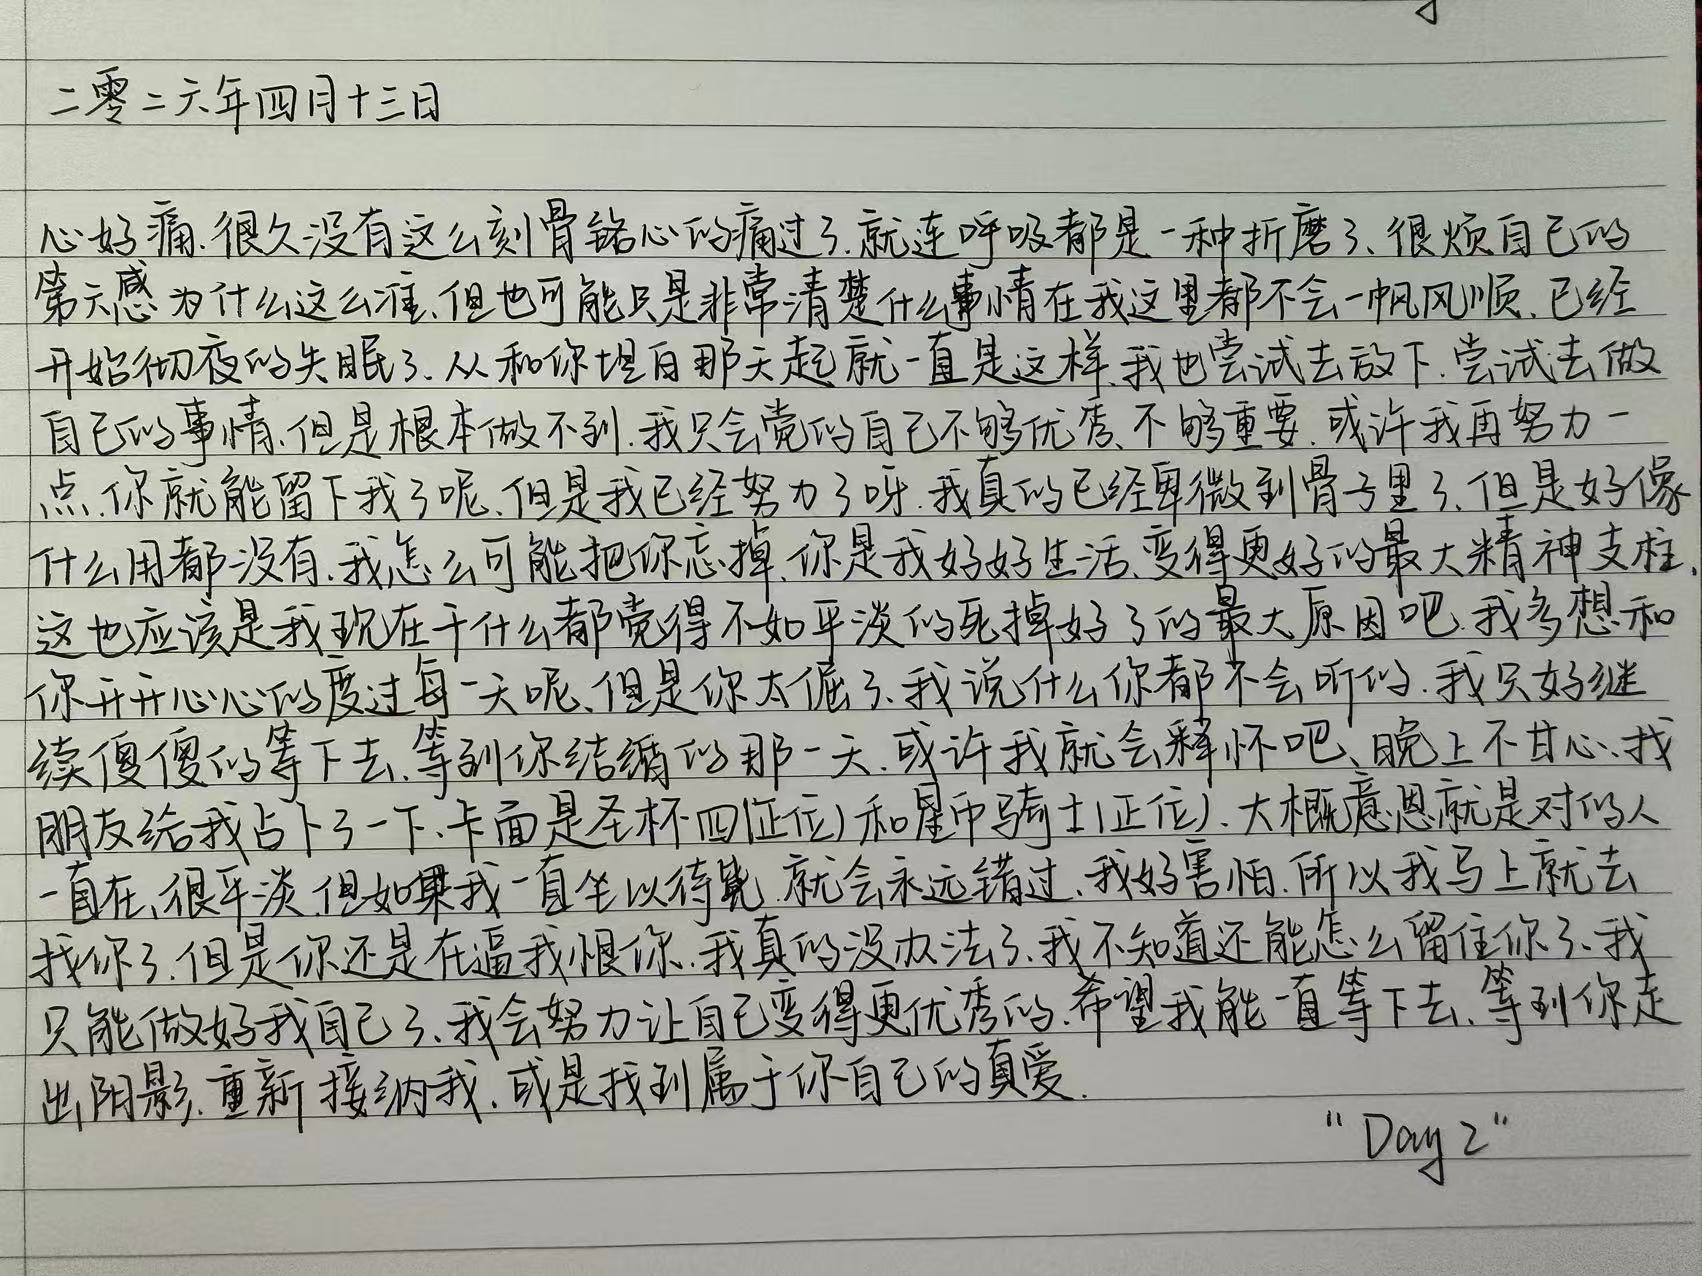 二零二六年四月十三日
心好痛.很久没有这么刻骨铭心的痛过了.就连呼吸都是一种折磨了、很烦自己的
第六感为什么这么准、但也可能只是非常清楚什么事情在我这里都不会一帆风顺.已经
开始彻夜的失眠了.从和你坦白那天起就一直是这样、我也尝试去放下.尝试去做
自己的事情、但是根本做不到.我只会觉的自己不够优秀、不够重要.或许我再努力一
点.你就能留下我了呢、但是我已经努力了呀.我真的已经卑微到骨子里了、但是好像
什么用都没有.我怎么可能把你忘掉.你是我好好生活、变得更好的最大精神支柱.
这也应该是我现在干什么都觉得不如平淡的死掉好了的最大原因吧.我多想和
你开开心心的度过每一天呢、但是你太倔了、我说什么你都不会听的.我只好继
续傻傻的等下去、等到你结婚的那一天.或许我就会释怀吧、晚上不甘心、找
朋友给我占卜了一下、卡面是圣杯四(正位)和星币骑士(正位).大概意思就是对的人
一直在、很平淡.但如果我一直坐以待毙.就会永远错过、我好害怕.所以我马上就去
找你了.但是你还是在逼我恨你.我真的没办法了、我不知道还能怎么留住你了、我
只能做好我自己了、我会努力让自己变得更优秀的.希望我能一直等下去、等到你走
出阴影、重新接纳我、或是找到属于你自己的真爱.
"Day 2"